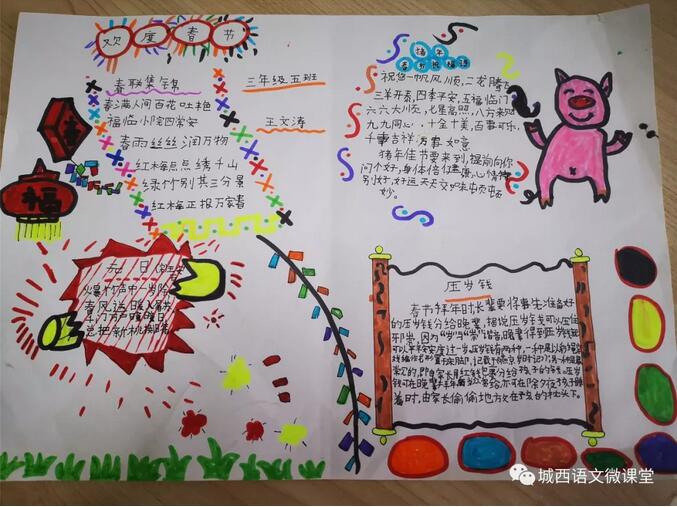 欢度春节
春联集锦
三年级五班
王文涛
春满人间百花吐艳
福临小院四季安
春雨丝丝润万物
红梅点点绣千山
绿竹别其三分景
红梅正报万家春
福
元日
爆竹声中一岁除
春风送暖入屠苏
千门万户曈曈日
总把新桃换旧符
猪年
春节祝福语
祝您一帆风顺,二龙腾飞
三羊开泰,四季平安,五福临门
六六大顺,七星高照,八方来财
九九同心,十全十美,百事可乐,
千事吉祥万事如意
猪年佳节要来到,提前向你
问个好,身体倍儿健康,心情特
别好,好运天天交,口味顿顿
妙。
压岁钱
春节拜年时长辈要将事先准备好
的压岁钱分给晚辈,据说压岁钱可以压住
邪祟,因为"岁"与"祟"谐音,晚辈得到压岁钱就
可以平平安安度过一岁,压岁钱有两种,一种是以
常见的,即由家长用红纸包裹分给孩子的钱。压岁
钱可在晚辈拜年后当众赏给,亦可在除夕夜孩子睡
着时,由家长偷偷地放在孩子的枕头下。
城西语文微课堂